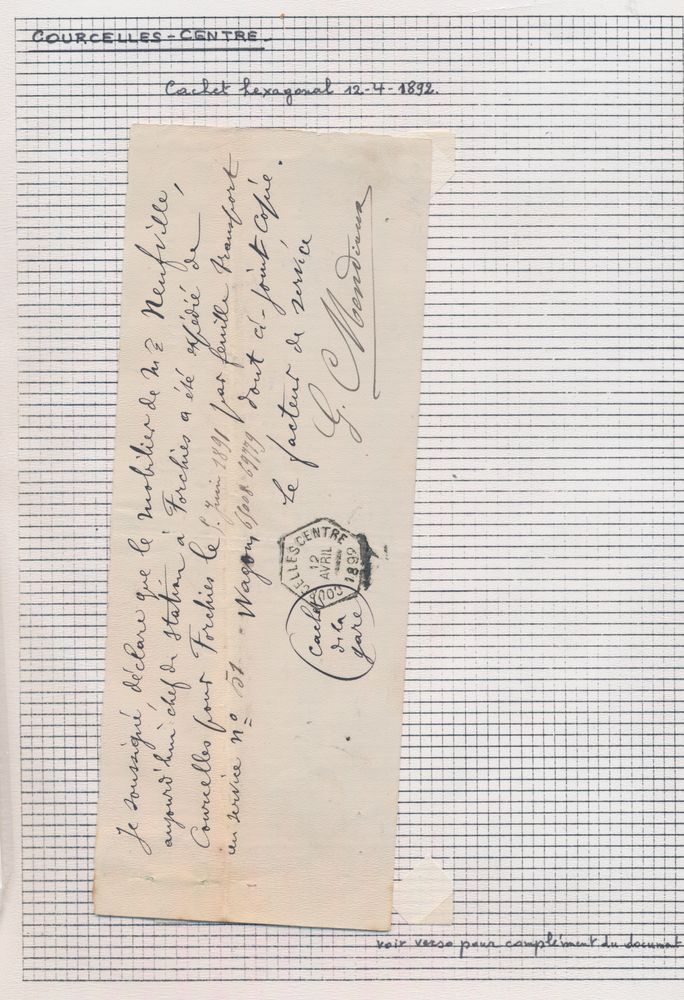 COURCELLES-CENTRE
Cachet hexagonal 12-4-1892.
Je soussigné, déclare que le mobilier de Mr Neufville,
aujourd'hui chef de station à Forchies a été expédié de
Courcelles pour Forchies le 8 Juin 1891 par feuille transport
en service No 51 - Wagons 61008 69779 dont ci-joint Copie.
Le facteur de service
G.
COURCELLES CENTRE
12
AVRIL
1892
Cachet
de la
gare
voir verso pour complément du document